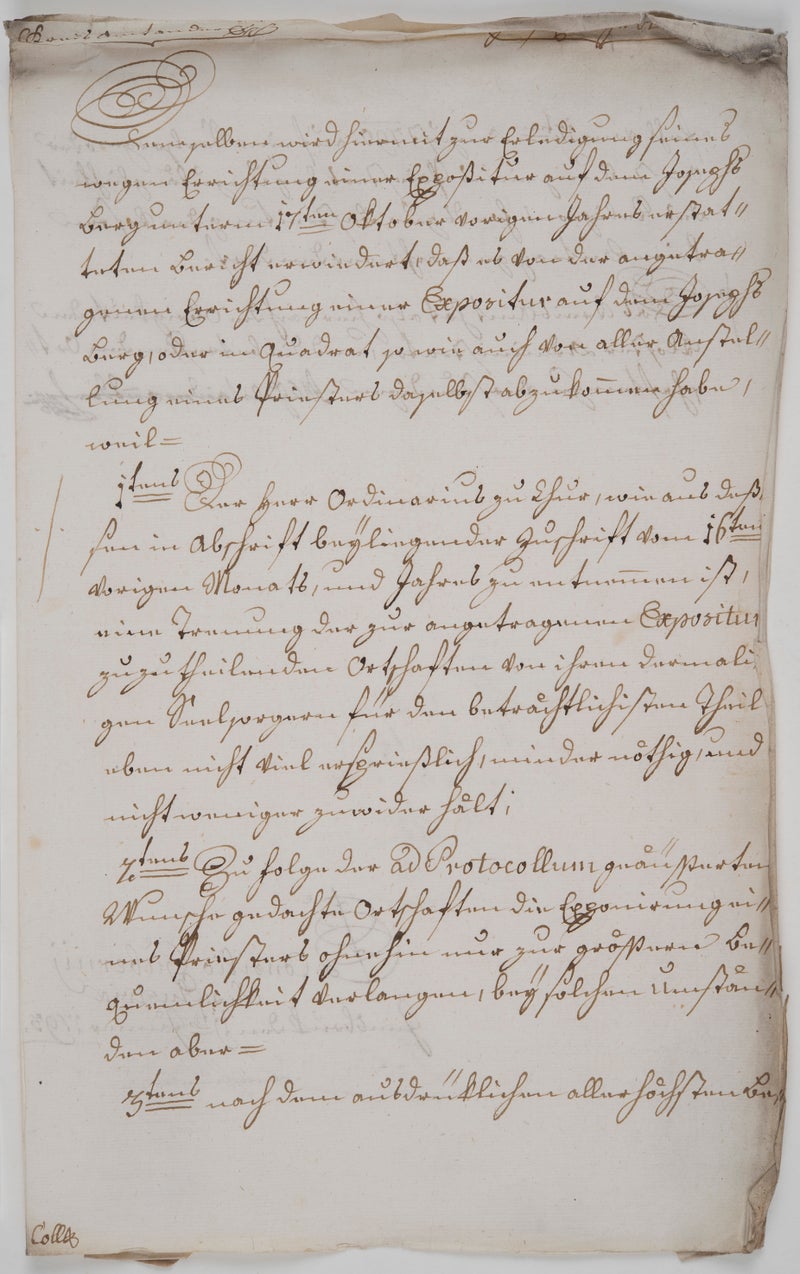 Demselben wird hiermit zur Erledigung seines
wegen Errichtung einer Expositur auf dem Josephs
Berg unterm 17ten Oktober vorigen Jahres erstat„
teten Bericht erwiedert, daß es von der angetra„
genen Errichtung einer Expositur auf dem Josephs
Berg, oder im Quadrat, so wie auch von aller Anstel„
lung eines Priesters daselbst abzukom̄en habe,
weil=
1tens Der Herr Ordinarius zu Chur, wie aus deß„
sen in Abschrift beÿliegender Zuschrift vom 16ten
vorigen Monats, und Jahres zu entnem̄en ist,
eine Trenung der zur angetragenen Expositur
zuzutheilenden Ortschaften von ihren dermali„
gen Seelsorgern für den beträchtlichisten Theil
eben nicht viel ersprießlich, minder nöthig, und
nicht weniger zuwider hält;
2tens Zu folge der ad Protocollum geäußerten
Wunsche gedachte Ortschaften die Exponirung ei„
nes Priesters ohnehin nur zur größern Be„
quemlichkeit verlangen, beÿ solchen Umstän„
den aber=
3tens nach dem ausdrüklichen allerhöchsten Be„